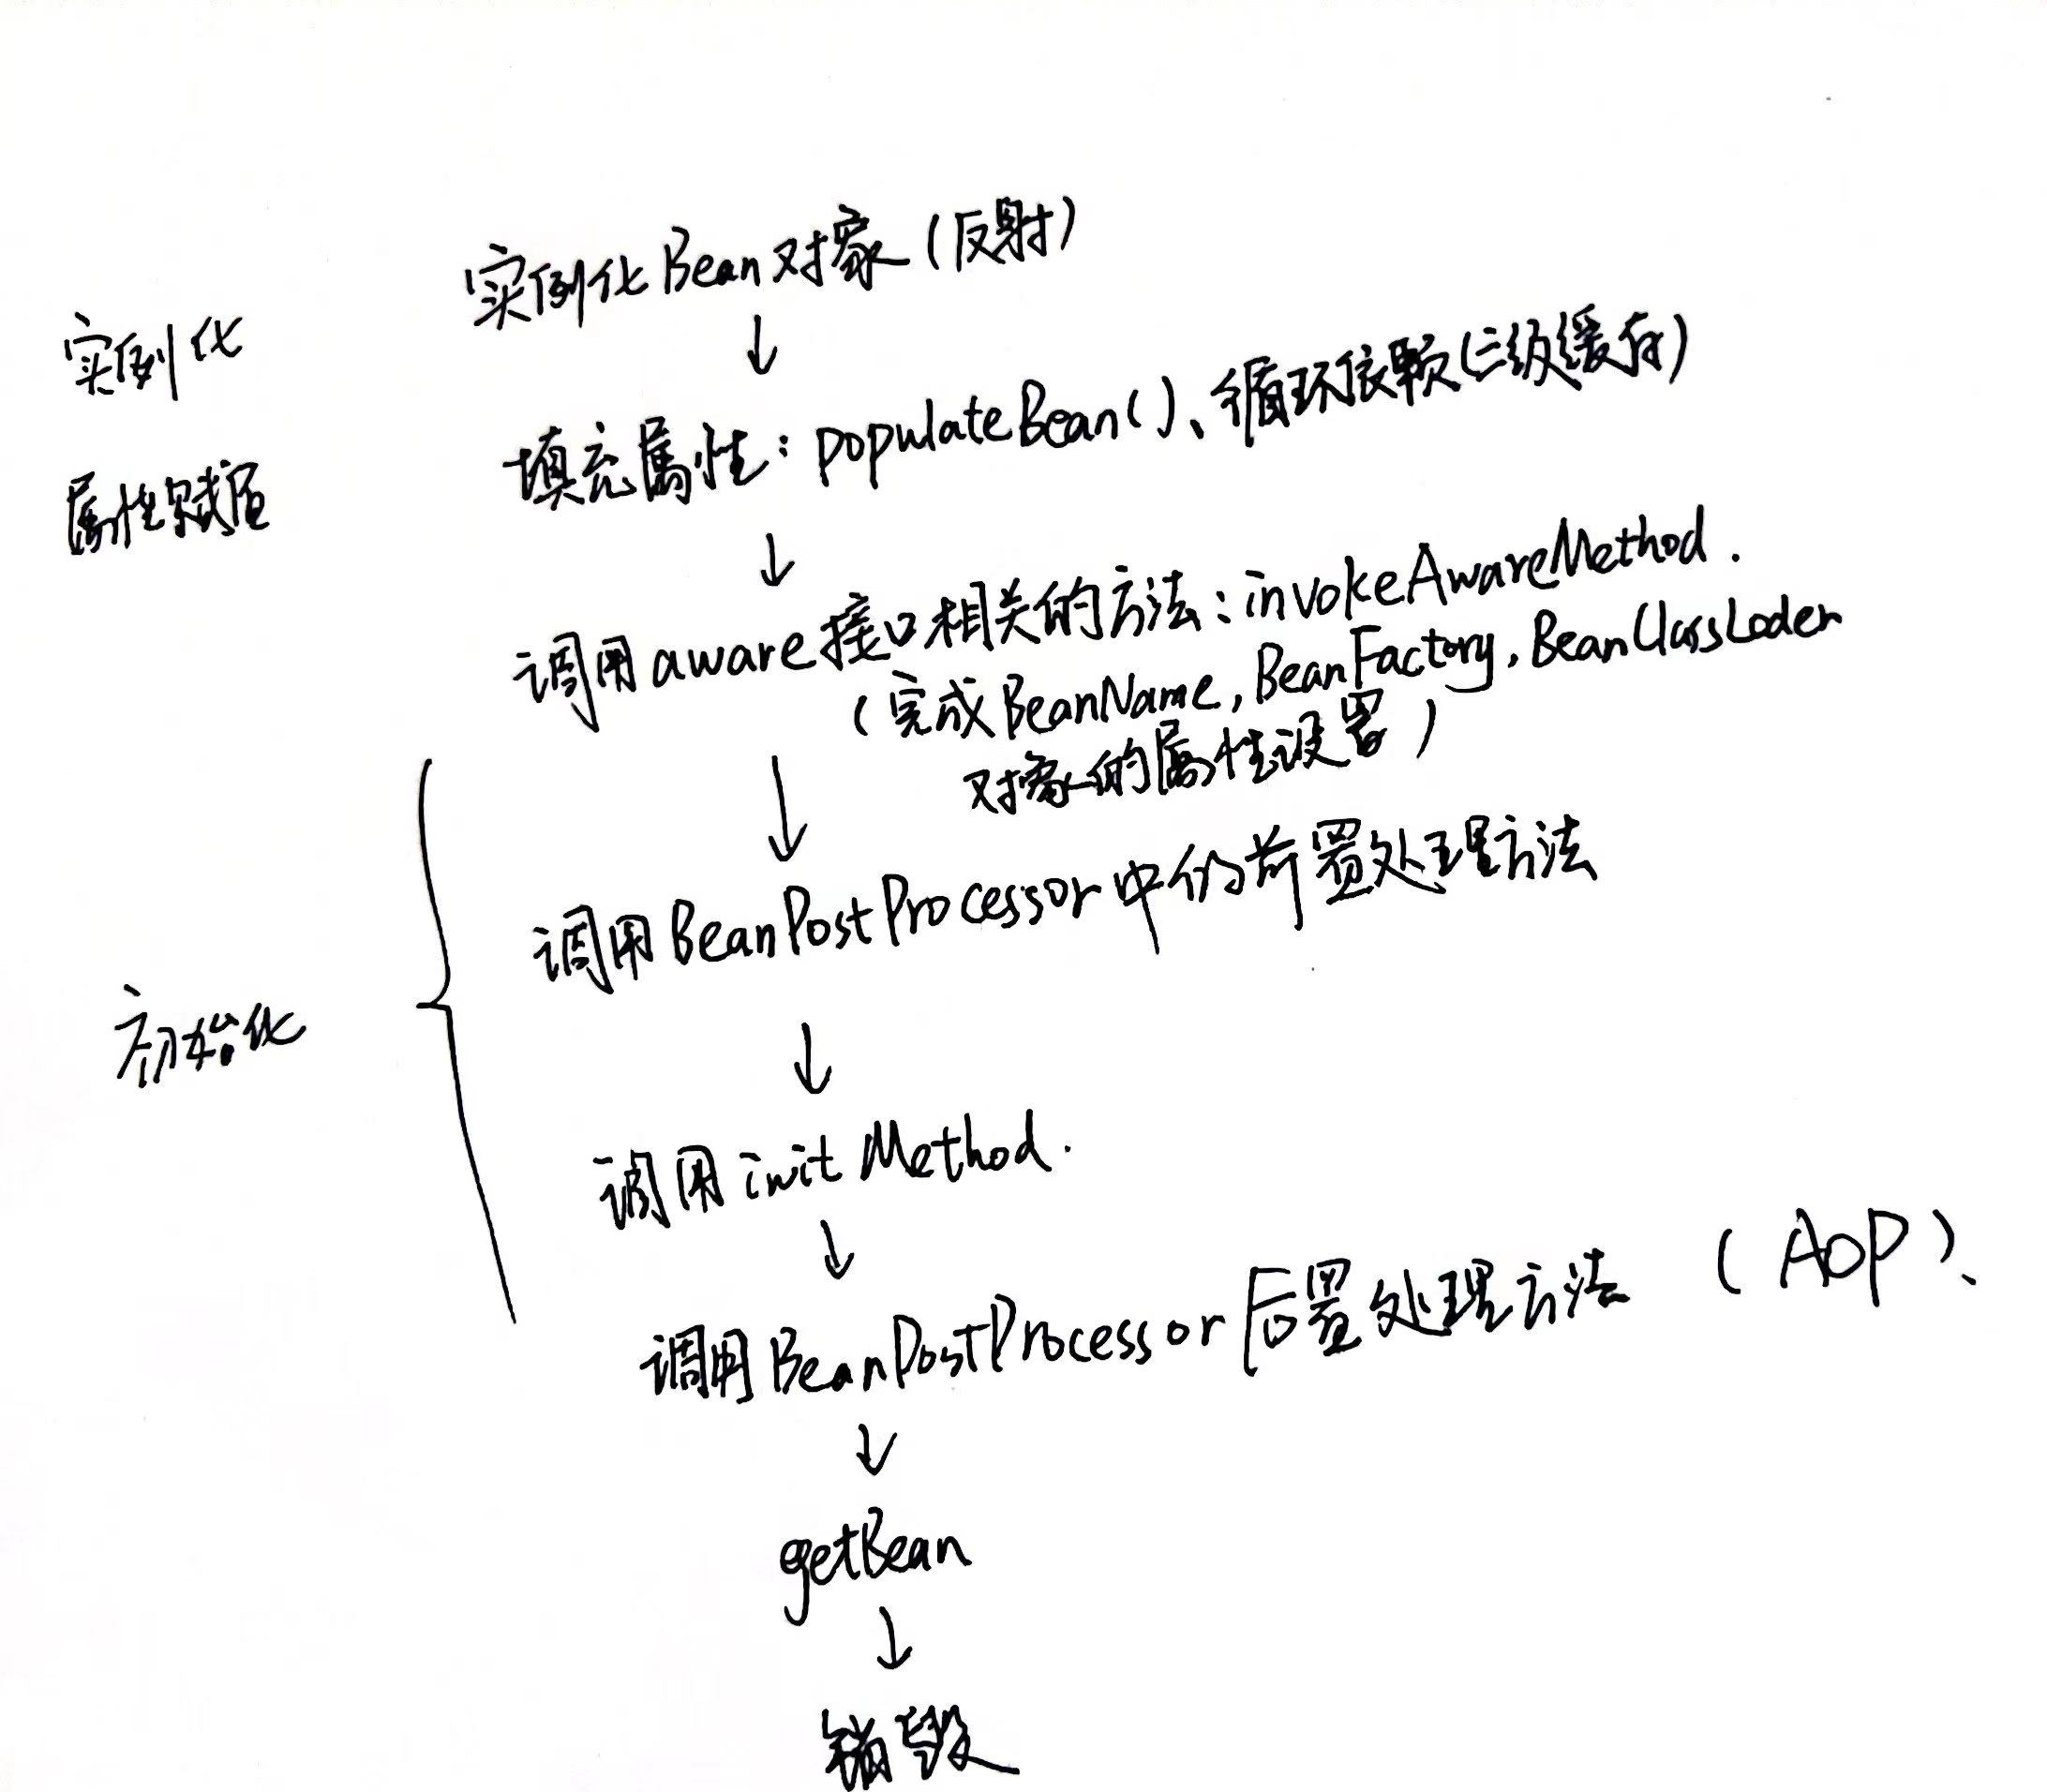 实例化Bean对象(反射)
↓
实例化
填充属性：populateBean()、循环依赖(三级缓存)
属性赋值
↓
调用aware接口相关的方法：invokeAwareMethod.
(完成BeanName, BeanFactory, BeanClassLoder
对象的属性设置)
↓
调用BeanPostProcessor中的前置处理方法
初始化
↓
调用initMethod.
↓
调用BeanPostProcessor后置处理方法 (AOP)、
↓
getBean
↓
销毁